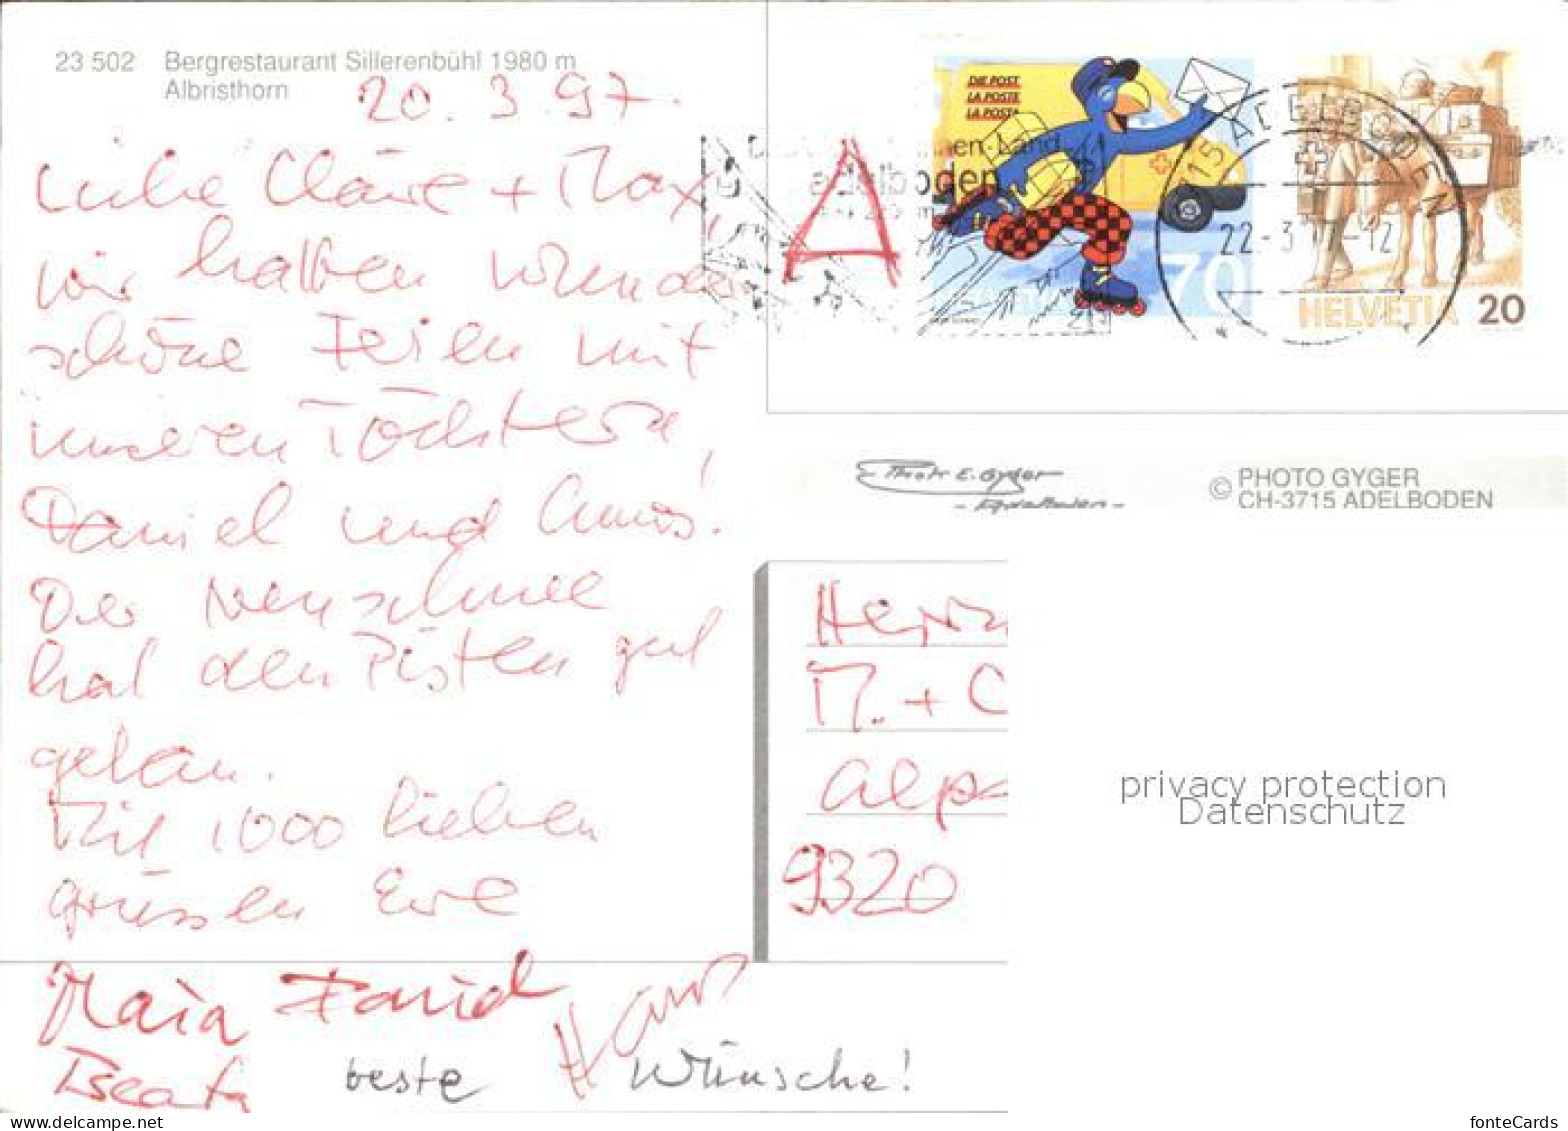 23 502 Bergrestaurant Sillerenbühl 1980 m
Albristhorn
20. 3. 97.
Liebe Claire + Max,
wir hatten wunder
schöne Ferien mit
unseren Töchtern,
Daniel und
Der Neuschnee
hat den Pisten gut
getan.
Mit 1000 lieben
grüssen Eve
Maia Daniel
Beata beste Wünsche!
DIE POST
LA POSTE
LA POSTA
A
adelboden
70
3715 ADELBODEN
22-3 -12
HELVETIA 20
Photo E. Gyger
- Adelboden -
© PHOTO GYGER
CH-3715 ADELBODEN
M. + C
Alp
9320
privacy protection
Datenschutz
fonteCards